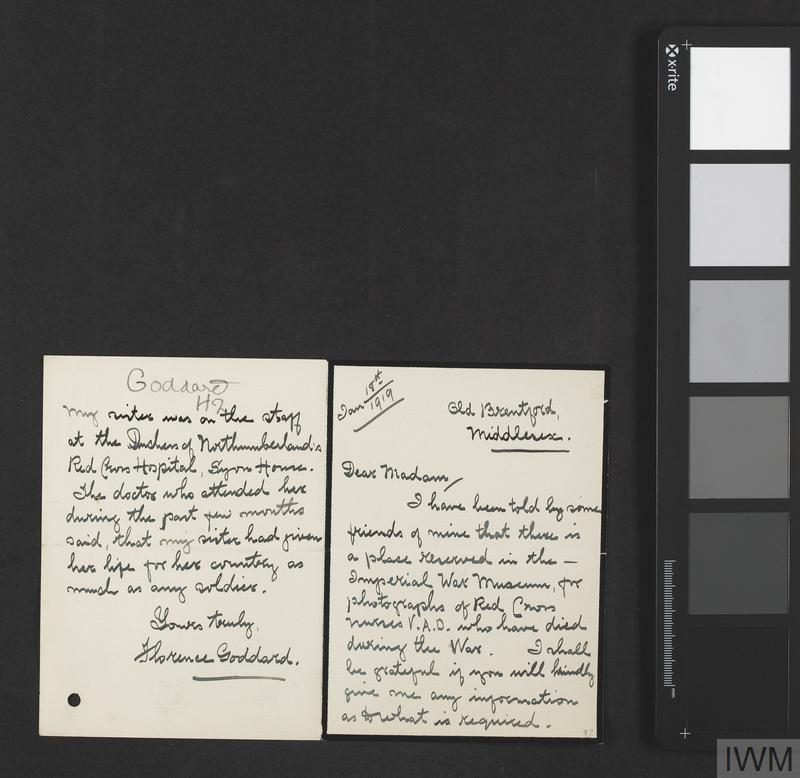 Jan 18th
1919
Old Brentford,
Middlesex.
Dear Madam,
I have been told by some
friends of mine that there is
a place reserved in the -
Imperial War Museum, for
photographs of Red Cross
nurses V.A.D. who have died
during the War. I shall
be grateful if you will kindly
give me any information
as to what is required.
97
Goddard
H2
My sister was on the staff
at the Duchess of Northumberland's
Red Cross Hospital, Syon House.
The doctor who attended her
during the past few months
said, that my sister had given
her life for her country as
much as any soldier.
Yours truly,
Florence Goddard.
x-rite
mm
IWM